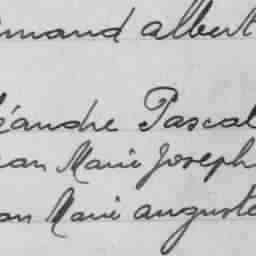 rmand albert
éandre Pascal
ean Marie Joseph
ean Marie auguste